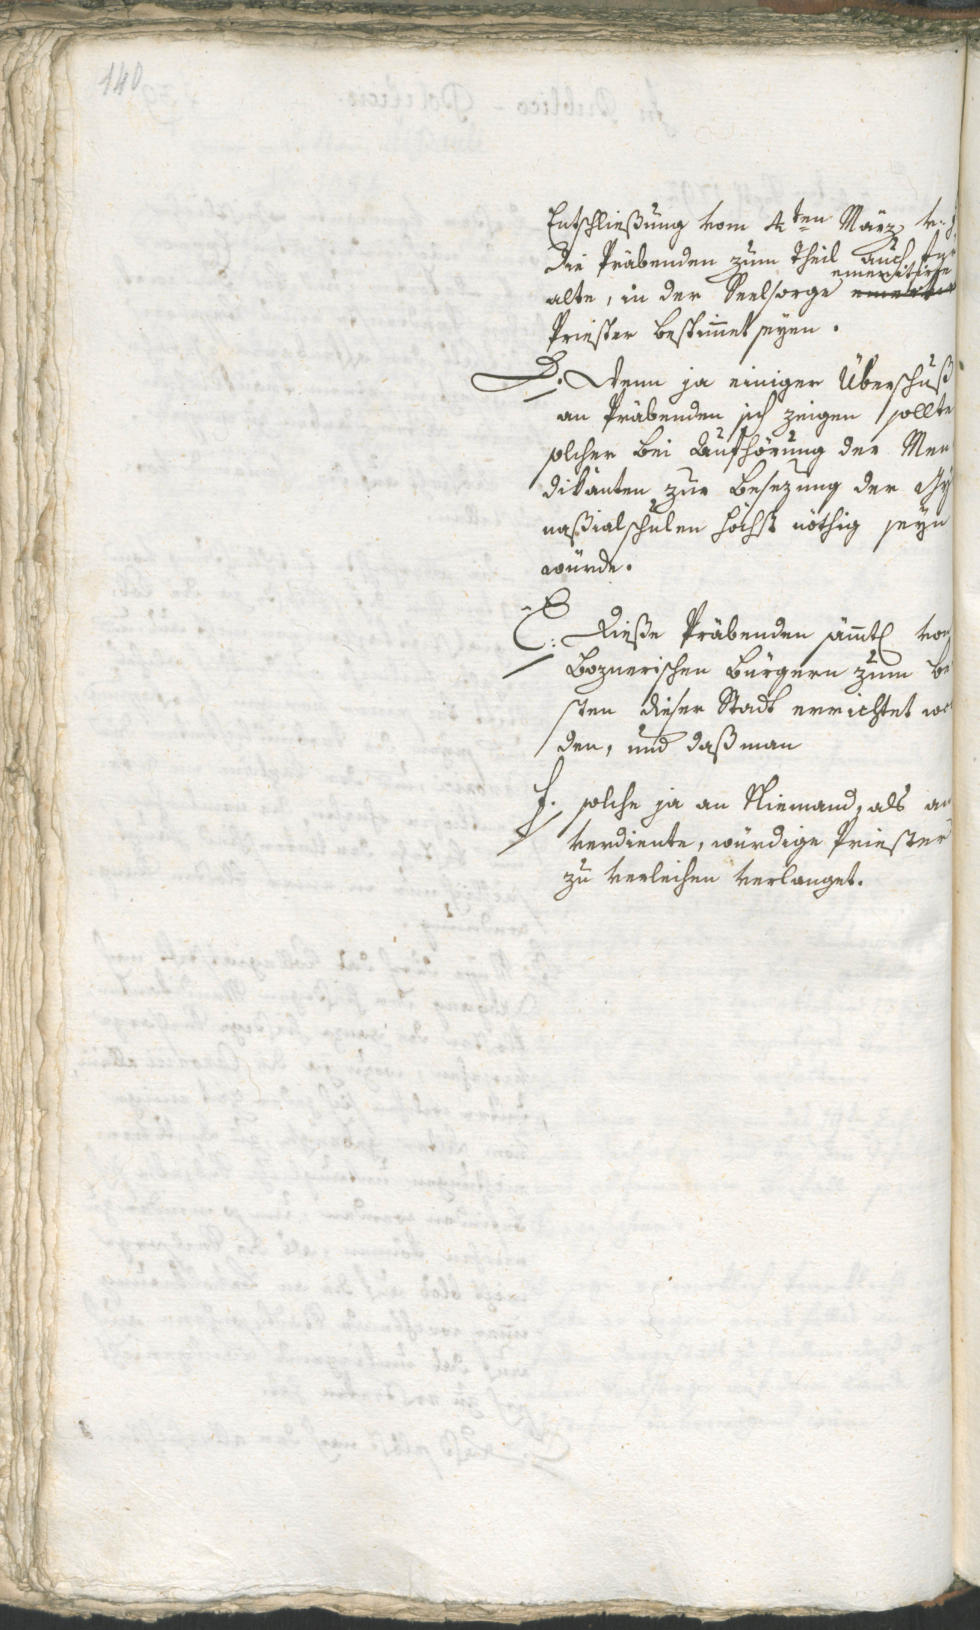 140
Entschließung vom 4ten März v. J.
die Präbenden zum Theil auch für
alte, in der Seelsorge emeritirte
Priester bestimmet seyen.
D. Wenn ja einiger Überschuß
an Präbenden sich zeigen sollte
solcher bei Aufhörung der Men
dikanten zur Besezung der Gy
naßialschulen höchst nöthig seyn
würde.
E. Diese Präbenden sämtl von
Boznerischen Bürgern zum Be
sten dieser Stadt errichtet wor
den, und daß man
f. solche ja an Niemand, als an
verdiente, würdige Priester
zu verleihen verlanget.